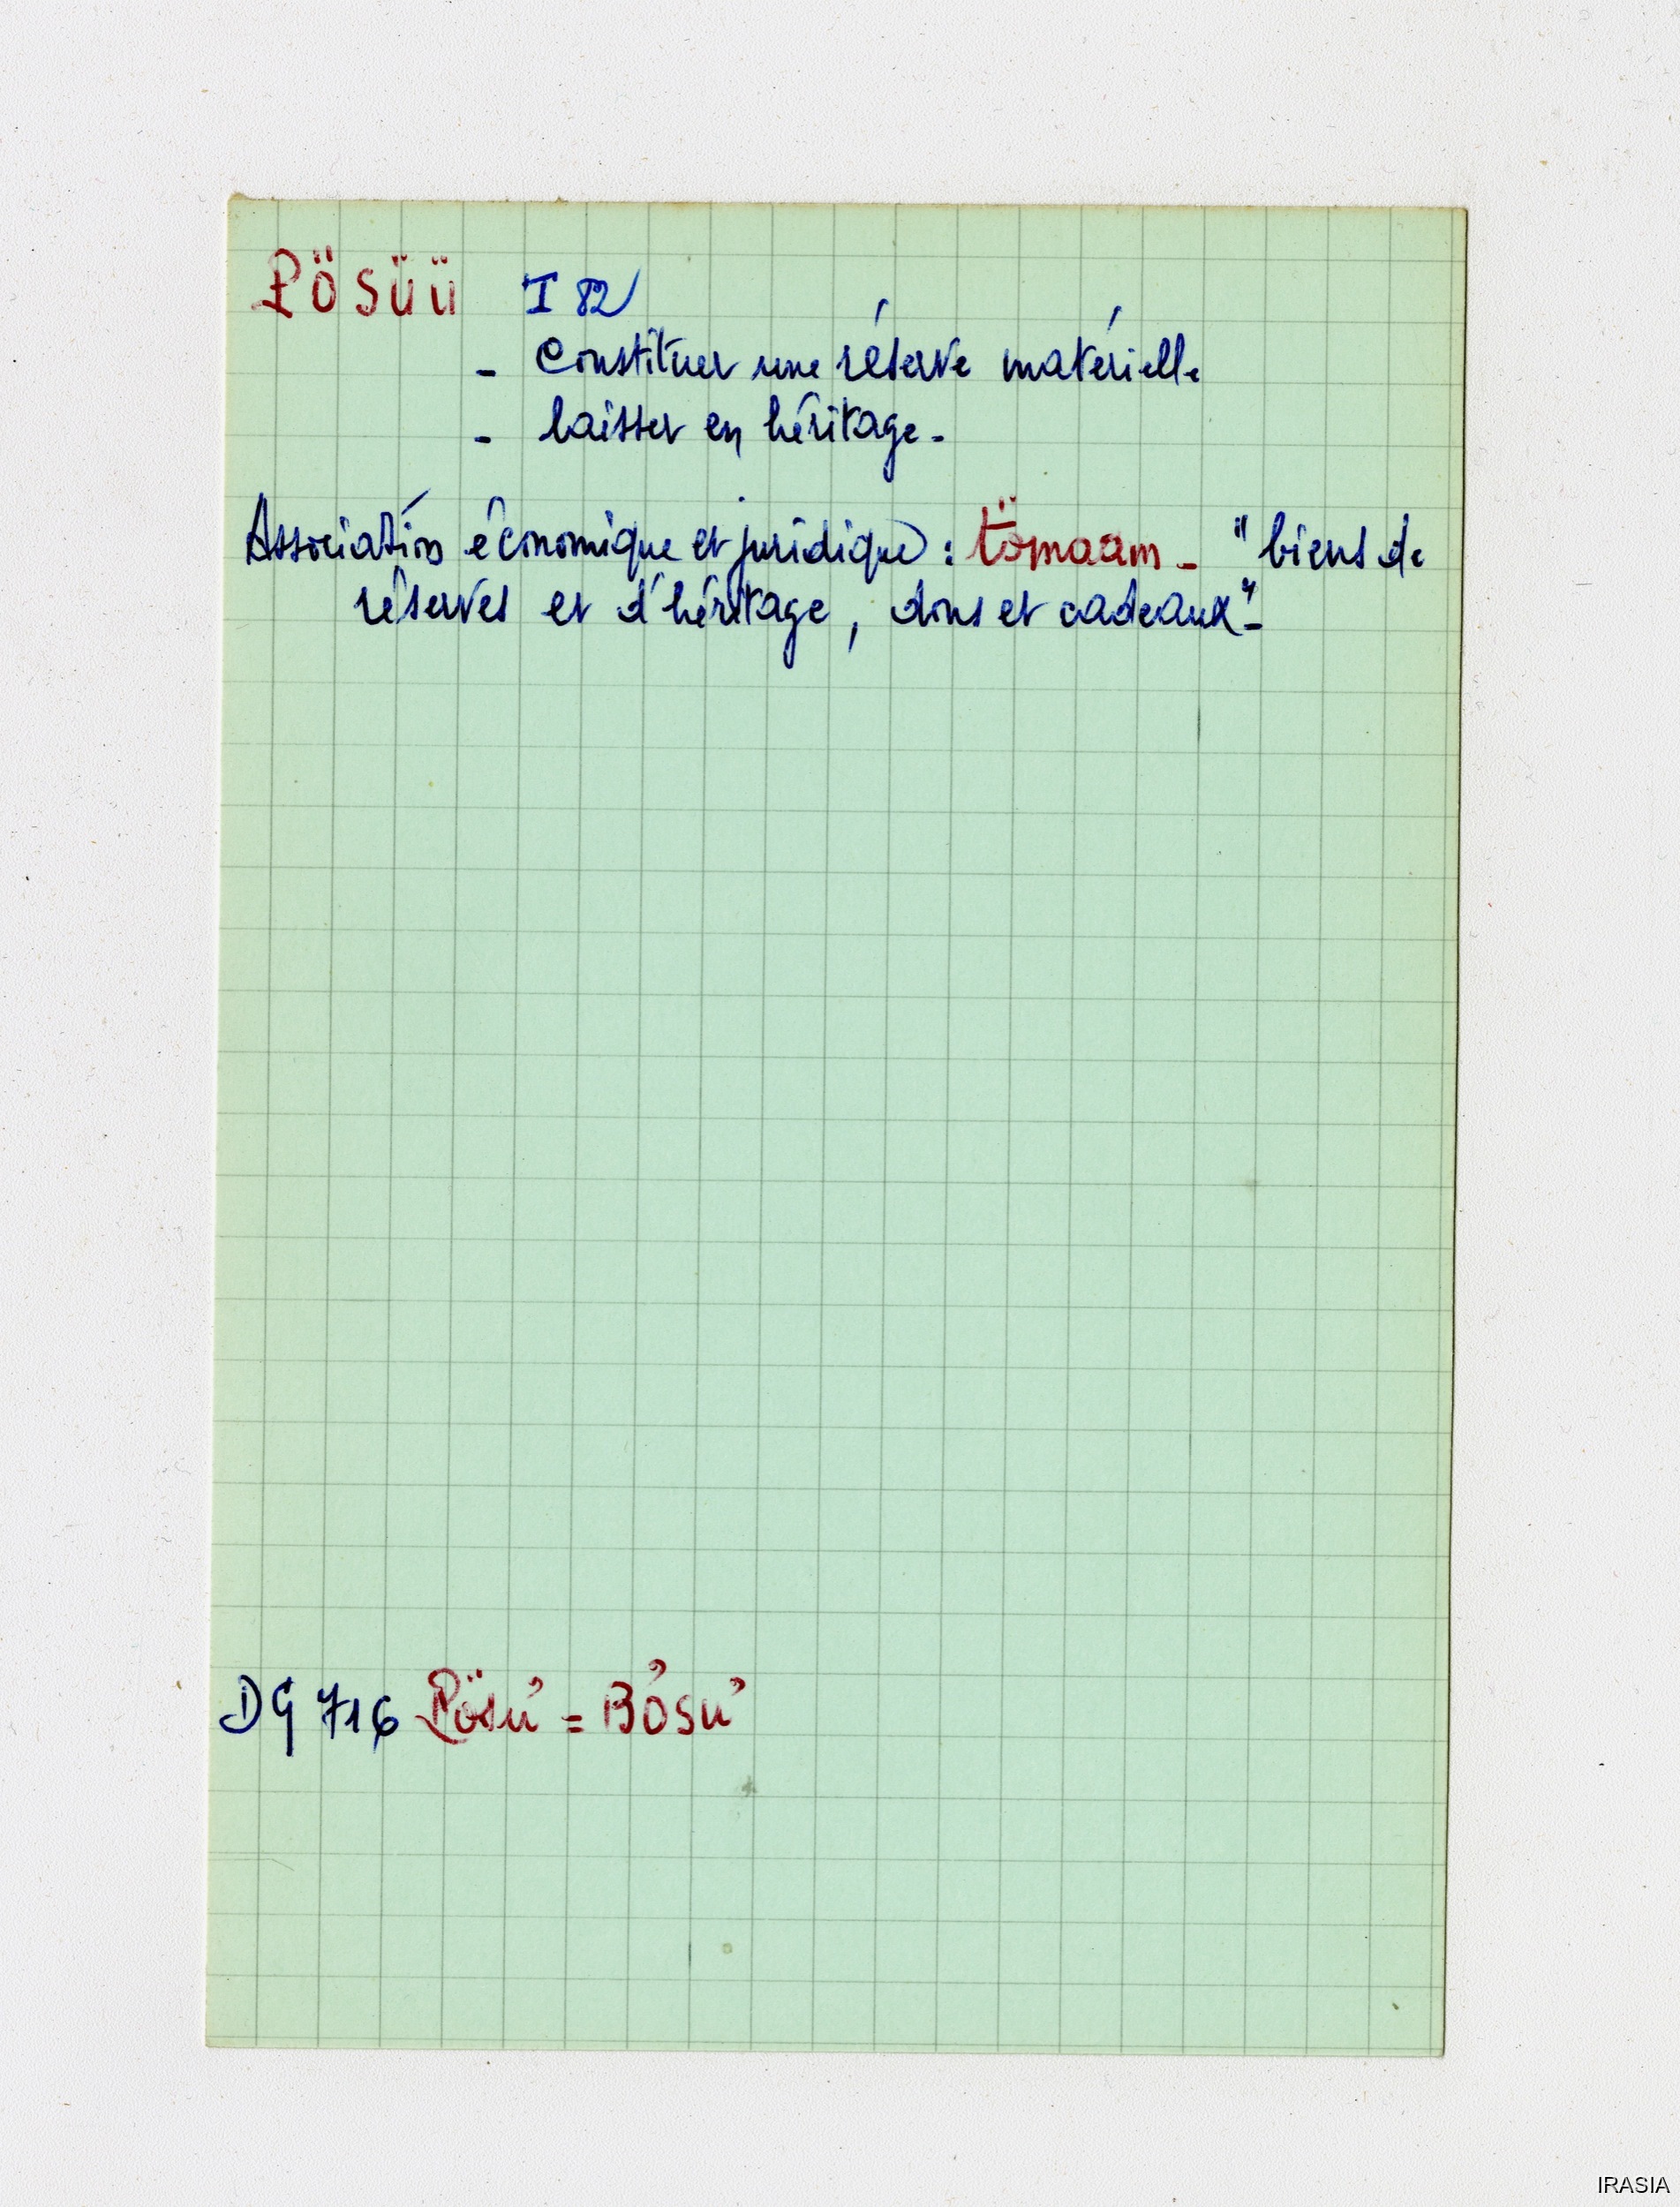 Pösüü I 82
- Constituer une réserve matérielle
- laisser en héritage -
Association économique et juridique : tömaam - "biens de
réserves et d'héritage, dons et cadeaux" -
DG 716 Pösu̓ = Bo̓su̓
IRASIA